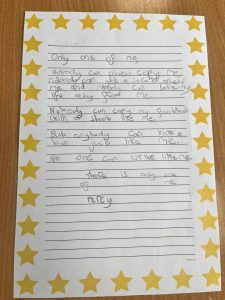 Only one of me,
Nobody can photo copy me
nobody can tell a second
me and nobody can take my
away from me.
Nobody can copy my football
skills or shoot like me.
But anybody can kick a
ball just like me.
No one can write like me.
There is only one
of me